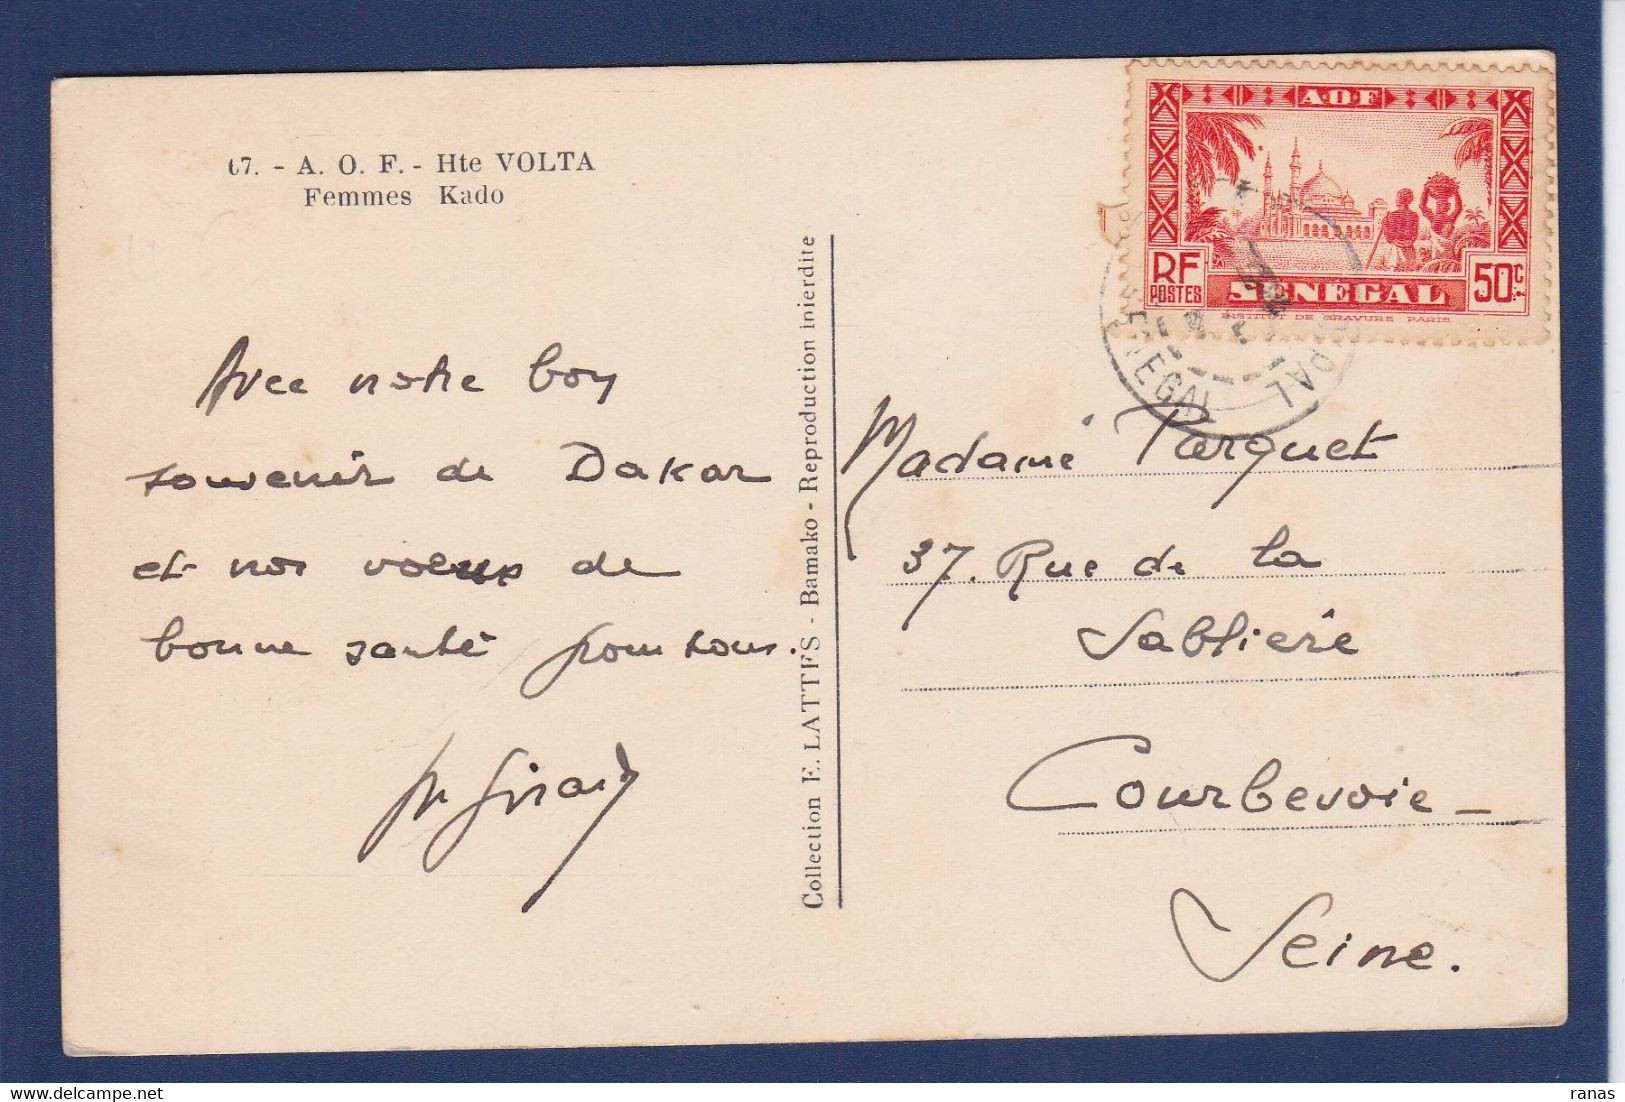 67. - A. O. F. - Hte VOLTA
Femmes Kado
Avec notre bon
souvenir de Dakar
et nos voeux de
bonne santé pour tous.
Girard
Collection E. LATTES - Bamako - Reproduction interdite
AOF
RF
POSTES
SENEGAL
50c.
INSTITUT DE GRAVURE PARIS
SENEGAL
Madame Parquet
37. Rue de la
Sablière
Courbevoie -
Seine.
ranas